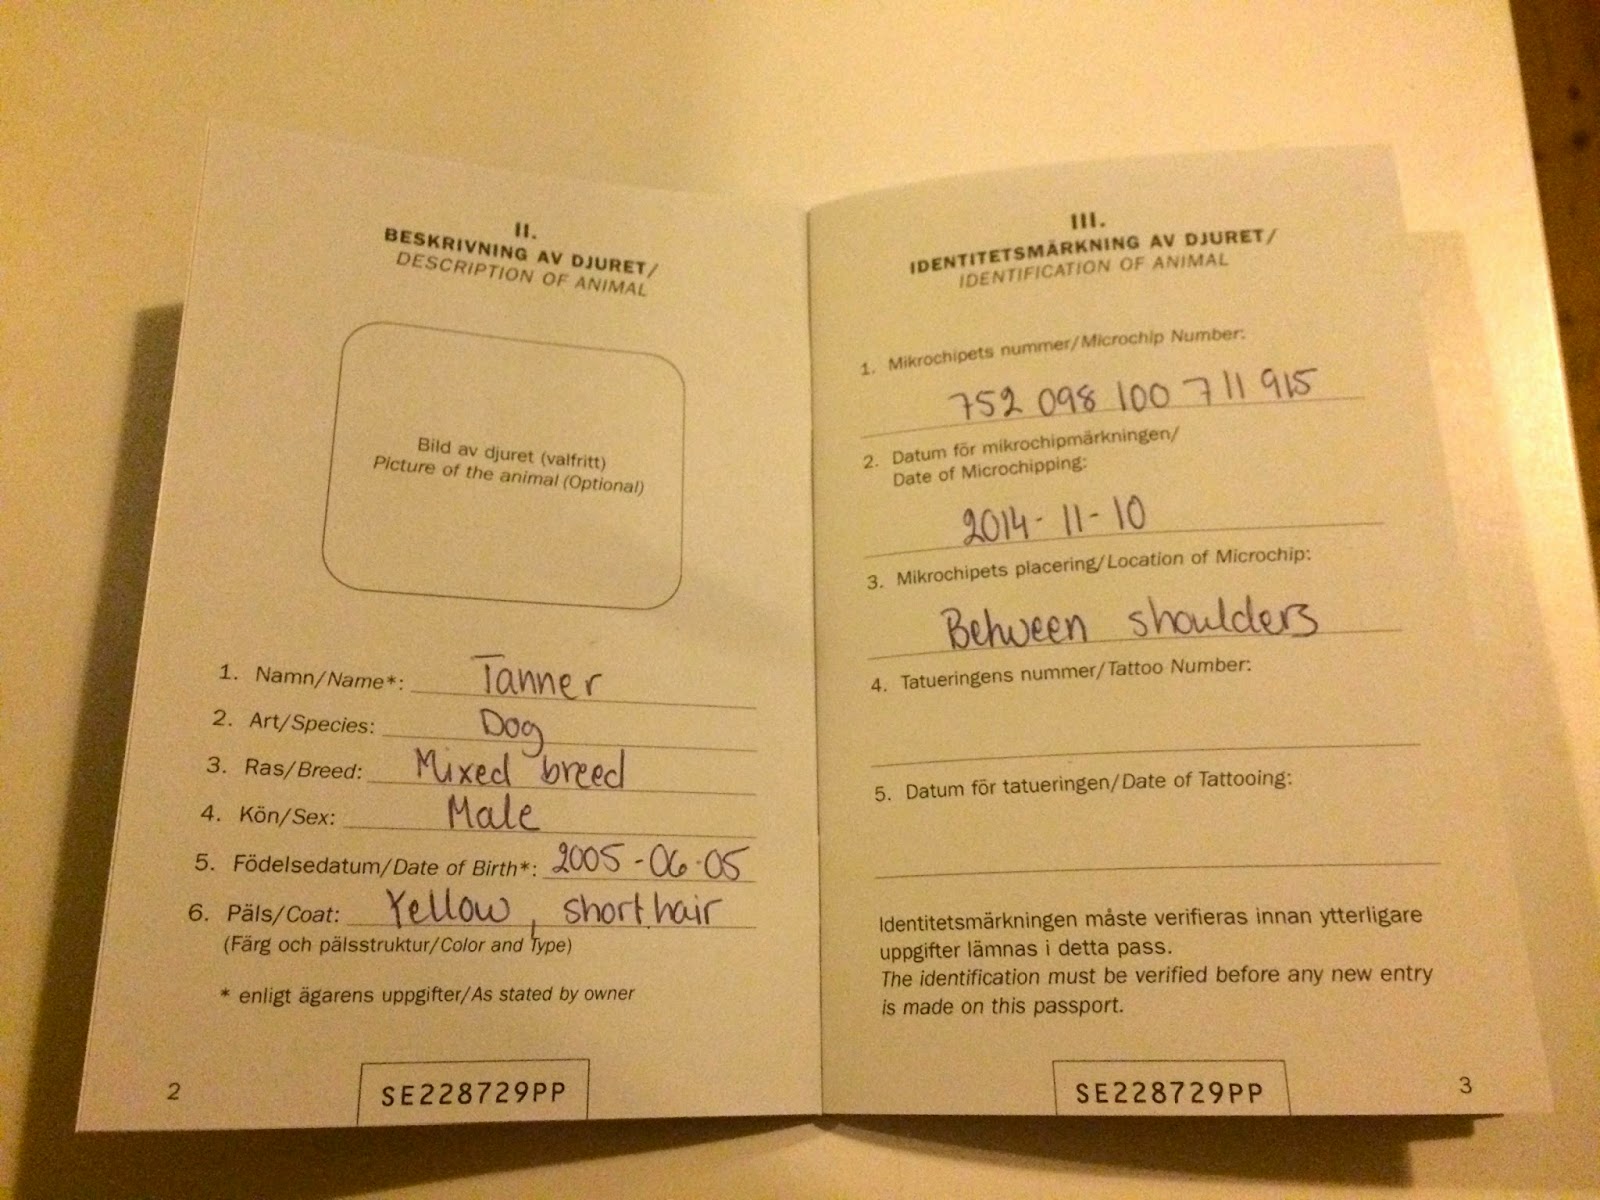 II.
BESKRIVNING AV DJURET/
DESCRIPTION OF ANIMAL
Bild av djuret (valfritt)
Picture of the animal (Optional)
1. Namn/Name*: Tanner
2. Art/Species: Dog
3. Ras/Breed: Mixed breed
4. Kön/Sex: Male
5. Födelsedatum/Date of Birth*: 2005-06-05
6. Päls/Coat: Yellow, shorthair
(Färg och pälsstruktur/Color and Type)
* enligt ägarens uppgifter/As stated by owner
SE228729PP
2
III.
IDENTITETSMÄRKNING AV DJURET/
IDENTIFICATION OF ANIMAL
1. Mikrochipets nummer/Microchip Number:
752 098 100 711 915
2. Datum för mikrochipmärkningen/
Date of Microchipping:
2014-11-10
3. Mikrochipets placering/Location of Microchip:
Between shoulders
4. Tatueringens nummer/Tattoo Number:
5. Datum för tatueringen/Date of Tattooing:
Identitetsmärkningen måste verifieras innan ytterligare
uppgifter lämnas i detta pass.
The identification must be verified before any new entry
is made on this passport.
SE228729PP
3